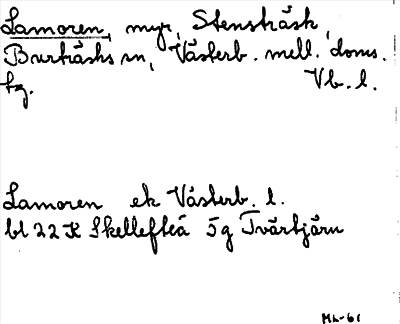 Lamoren, myr, Stensträsk,
Burträsks sn, Västerb. mell. doms.
tg. Vb. l.
Lamoren ek Västerb. l.
bl 22 K Skellefteå 5g Tvärtjärn
ML-61